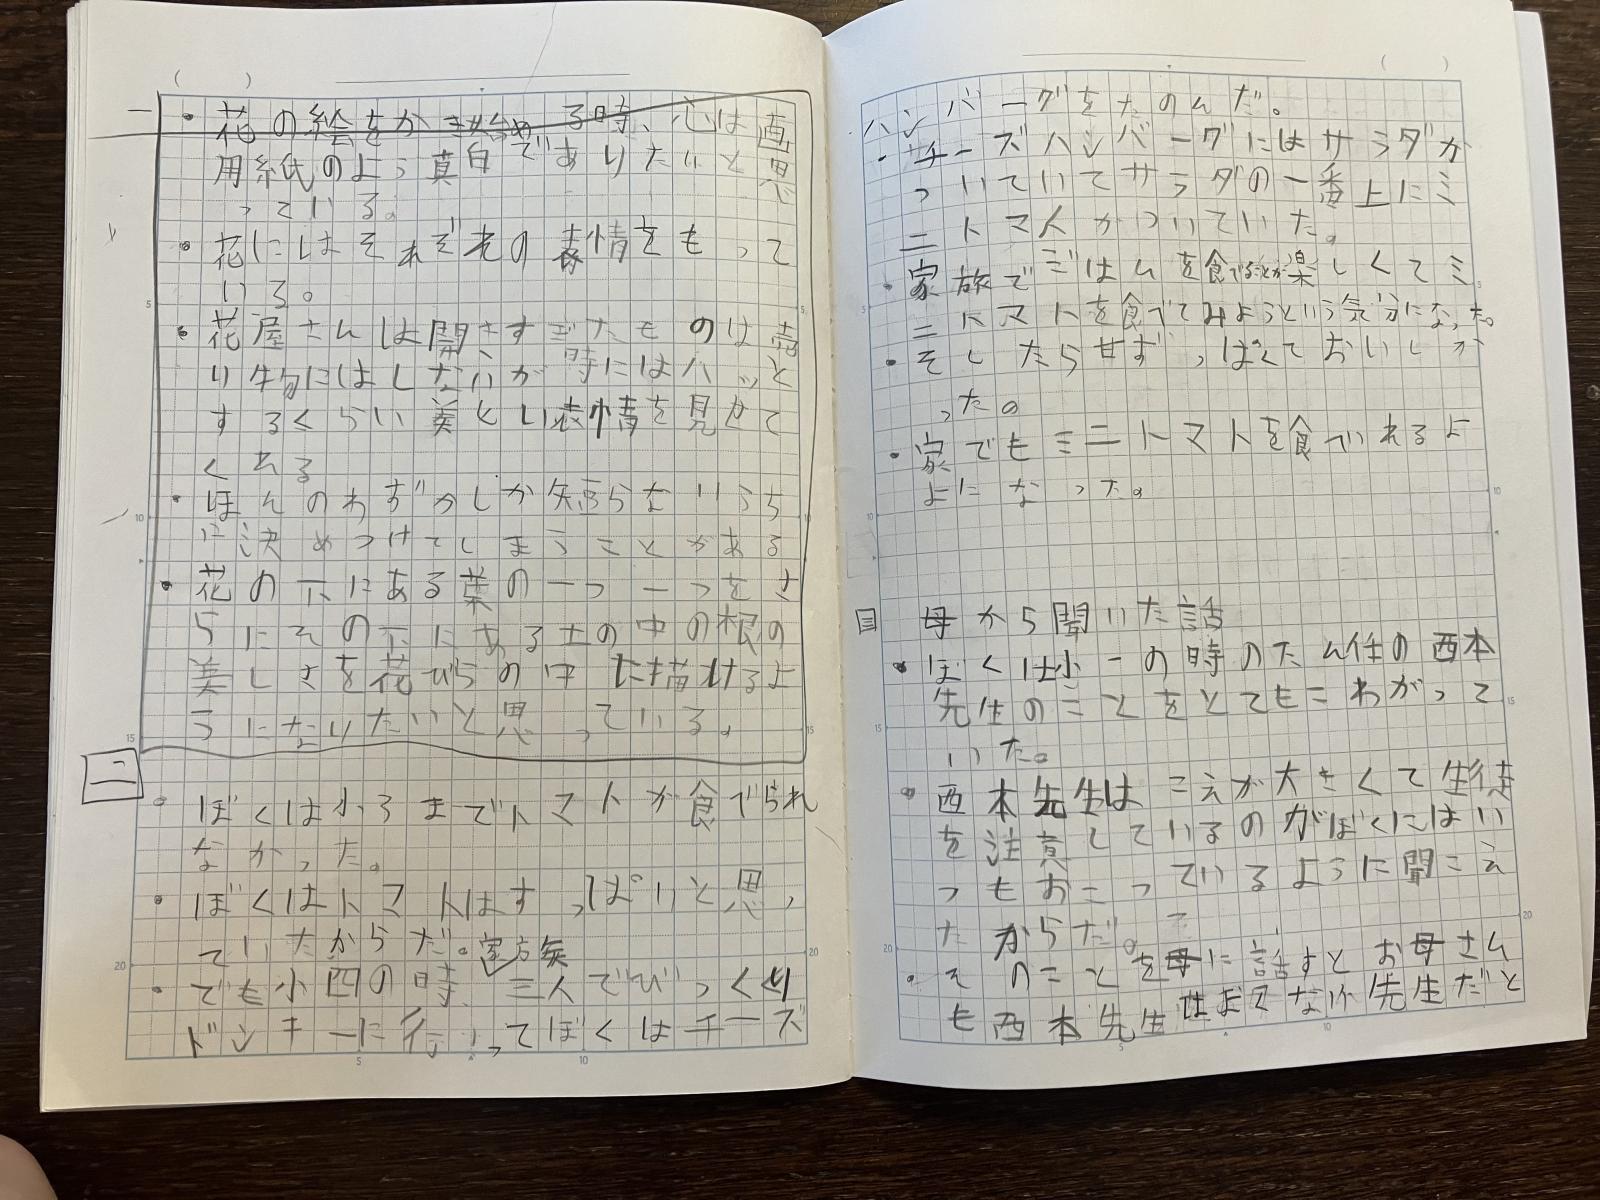 一
・花の絵をかき始める時、心は画
用紙のよう真白でありたいと思
っている。
・花にはそれぞれの表情をもって
いる。
・花屋さんは開きすぎたものは売
り物にはしないが、時にはハッと
するくらい美しい表情を見せて
くれる
・ほんのわずかしか知らないうち
に決めつけてしまうことがある
・花の下にある葉の一つ一つをさ
らにその下にある土の中の根の
美しさを花びらの中に描けるよ
うになりたいと思っている。
二
・ぼくは小3までトマトが食でられ
なかった。
・ぼくはトマトはすっぱいと思っ
ていたからだ。
・でも小四の時、家族三人でびっくり
ドンキーに行ってぼくはチーズ
ハンバーグをたのんだ。
・チーズハンバーグにはサラダが
ついていてサラダの一番上にミ
ニトマトがついていた。
・家族でごはんを食でることが楽しくてミ
ニトマトを食べてみようという気分になった。
・そしたら甘ずっぱくておいしか
った。
・家でもミニトマトを食でれるよ
よになった。
三 母から聞いた話
・ぼくは小一の時のたん任の西本
先生のことをとてもこわがって
いた。
・西本先生はこえが大きくて生徒
を注意しているのがぼくにはい
つもおこっているように聞こえ
たからだ。
・そのことを母に話すとお母さん
も西本先生はまてない先生だと